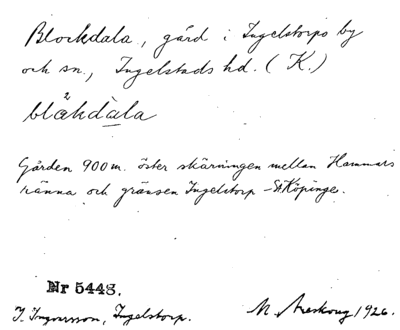 Blockdala, gård i Ingelstorps by
och sn., Ingelstads hd. (K.)
blåkdàla
Gården 900 m. öster skärningen mellan Hammars
ränna och gränsen Ingelstorp - St Köpinge.
Nr 5443.
J. Ingvarsson, Ingelstorp. M. Areskoug 1926.